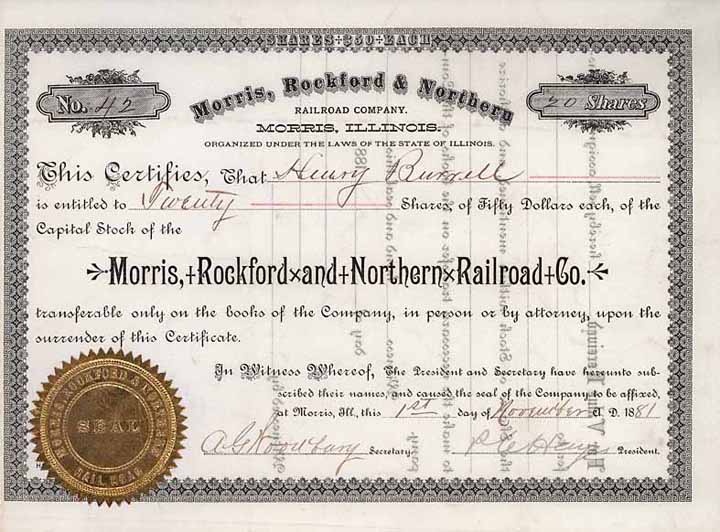 SHARES $50 EACH
No. 42
Morris, Rockford & Northern
20 Shares
RAILROAD COMPANY.
MORRIS, ILLINOIS.
ORGANIZED UNDER THE LAWS OF THE STATE OF ILLINOIS.
This Certifies, That Henry Burrell
is entitled to Twenty Shares, of Fifty Dollars each, of the
Capital Stock of the
Morris, Rockford and Northern Railroad Co.
transferable only on the books of the Company, in person or by attorney, upon the
surrender of this Certificate.
In Witness Whereof, The President and Secretary have hereunto sub-
scribed their names, and caused the seal of the Company to be affixed,
at Morris, Ill., this 1st day of November A. D. 1881
Secretary.
President.
MORRIS, ROCKFORD & NORTHERN
SEAL
RAIL ROAD